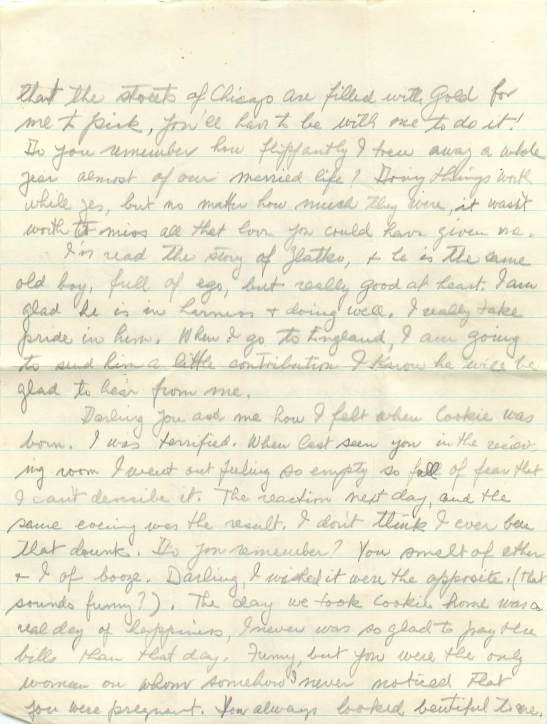 that the streets of Chicago are filled with Gold for
me to pick, you'll have to be with me to do it!
Do you remember how flippantly I threw away a whole
year almost of our married life? Doing things worth
while yes, but no matter how much they were, it wasn't
worth it to miss all that love you could have given me.
I've read the story of Zlatko, + he is the same
old boy, full of ego, but really good at heart. I am
glad he is in harness + doing well. I really take
pride in him. When I go to England, I am going
to send him a little contribution I know he will be
glad to hear from me.
Darling you ask me how I felt when Cookie was
born. I was terrified. When last seen you in the
ing room I went out feeling so empty so full of fear that
I can't describe it. The reaction next day, and the
same evening was the result. I don't think I ever been
that drunk. Do you remember? You smelt of ether
+ I of booze. Darling, I wished it were the opposite. (that
sounds funny?). The day we took Cookie home was a
real day of happiness, I never was so glad to pay the
bills than that day. Funny, but you were the only
woman on whom somehow I never noticed that
you were pregnant. You always looked beautiful to me.